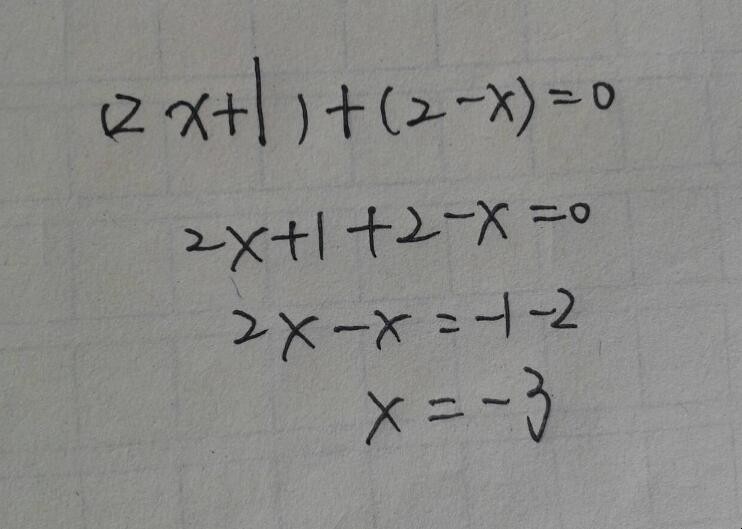 (2x+1)+(2-x)=0
2x+1+2-x=0
2x-x=-1-2
x=-3